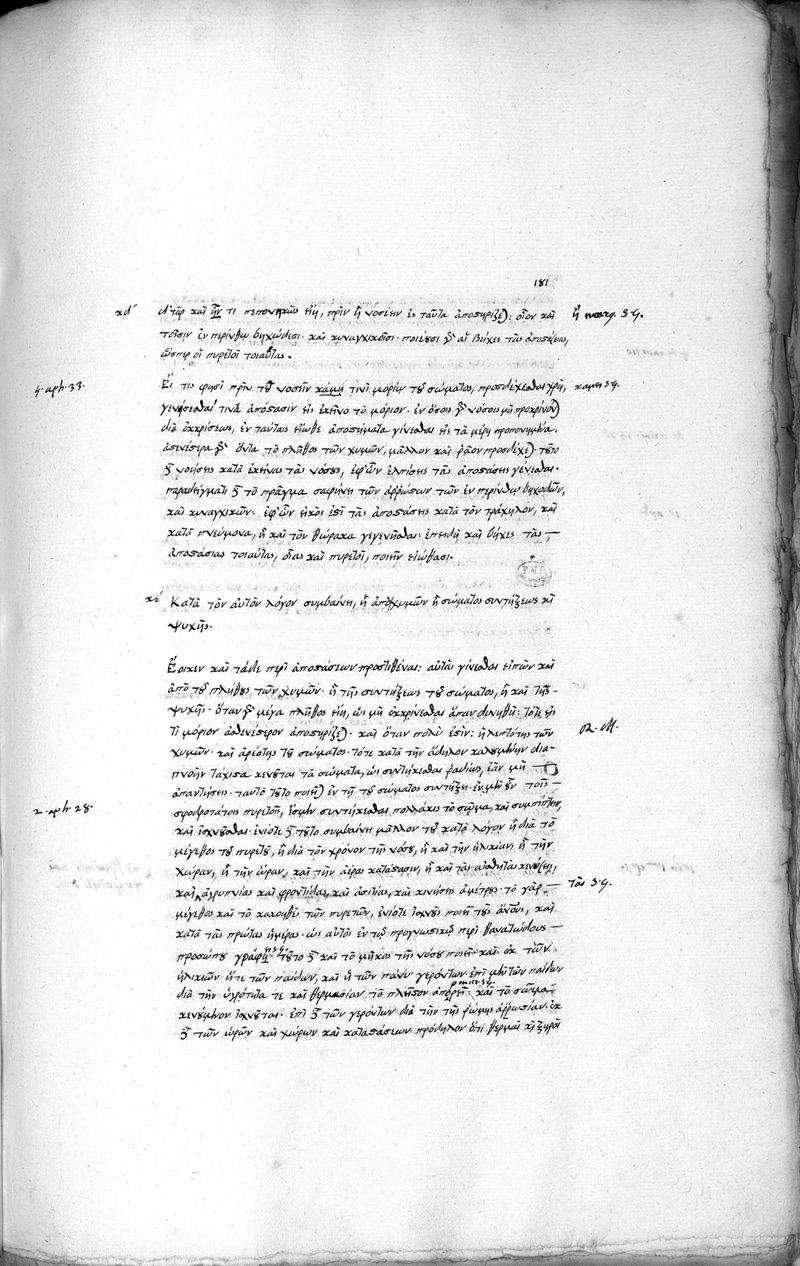 181
κδ´ ἀτὰρ καὶ ἤν τι πεπονηκὼς εἴη, πρὶν ἢ νοσέειν ἐς ταῦτα ἀποστηρίζεται: οἷον καὶ
τοῖσιν ἐν περίνθῳ βηχώδεσι· καὶ κυναγχικοῖσι· ποιέουσι γὰρ αἱ βῆχες τὰς ἀποστάσιας,
ὥσπερ οἱ πυρετοὶ τοιαύτας.
4. aph. 33.
Εἴ τις φησὶ πρὶν τοῦ νοσῆσαι κάμῃ τινὶ μορίῳ τοῦ σώματος, προσδέχεσθαι χρὴ,
γενήσεσθαί τινα ἀπόστασιν εἰς ἐκεῖνο τὸ μόριον· ἐν ὅσοις γὰρ νόσοις μὴ προκρίνονται
διὰ ἐκκρίσεως, ἐν ταύταις εἴωθε ἀποστήματα γίνεσθαι εἰς τὰ μέρη προπονημένα.
ἀσθενέστερα γὰρ ὄντα τὸ πλῆθος τῶν χυμῶν, μᾶλλον καὶ ῥᾷον προσδέχεται· τοῦτο
δὲ νοήσεις κατὰ ἐκείνας τὰς νόσους, ἐφ' ὧν ἐλπίσεις τὰς ἀποστάσεις γενέσθαι·
παραδείγματι δὲ τὸ πρᾶγμα σαφηνίζει τῶν ἀρρώστων τῶν ἐν περίνθῳ βηχωδῶν,
καὶ κυναγχικῶν· ἐφ' ὧν εἰκός ἐστι τὰς ἀποστάσεις κατὰ τὸν τράχηλον, καὶ
κατὰ πνεύμονα, ἢ καὶ τὸν θώρακα γεγενῆσθαι: ἐπειδὴ καὶ βῆχες τὰς
ἀποστάσιας τοιαύτας, οἵας καὶ πυρετοὶ, ποιεῖν εἰώθασι.
κέ Κατὰ τὸν αὐτὸν λόγον συμβαίνει, ἢ ἀπὸ χυμῶν ἢ σώματος συντήξεως καὶ
ψυχῆς.
Ἔοικεν καὶ τάδε περὶ ἀποστάσεων προστιθέναι: αὐτὰς γίνεσθαι εἰπὼν καὶ
ἀπὸ τοῦ πλήθους τῶν χυμῶν· ἢ τῆς συντήξεως τοῦ σώματος, ἢ καὶ τῆς
ψυχῆς· ὅταν γὰρ μέγα πλῆθος εἴη, ὡς μὴ ἐκκρίνεσθαι ἅπαν δυνηθῇ: τότε εἴς
τι μόριον ἀσθενέστερον ἀποστηρίζεται· καὶ ὅταν πολύ ἐστιν: ἡ λεπτότης τῶν
R. M.
χυμῶν· καὶ ἀραιότης τοῦ σώματος· τότε κατὰ τὴν ἄδηλον καλουμένην δια-
πνοὴν τάχιστα κενοῦται τὰ σώματα, ὡς συντήκεσθαι ῥᾳδίως, ἐὰν μὴ
ἀπαντήσεις· ταυτὸ τοῦτο ποιεῖται ἐν τῇ τοῦ σώματος συντήξει· ἐν μὲν οὖν τοῖς
2. aph. 28.
σφοδροτάτοις πυρετοῖς, ἴσμεν συντήκεσθαι πολλάκις τὸ σῶμα, καὶ συμπίπτειν,
καὶ ἰσχνοῦσθαι· ἐνίοτε δὲ τοῦτο συμβαίνει μᾶλλον τοῦ κατὰ λόγον ἢ διὰ τὸ
μέγεθος τοῦ πυρετοῦ, ἢ διὰ τὸν χρόνον τῆς νόσου, ἢ καὶ τὴν ἡλικίαν, ἢ τὴν
χώραν, ἢ τὴν ὥραν, καὶ τὴν ἀέρος κατάστασιν, ἢ καὶ τὰς αἰσθητὰς κενώσεις,
καὶ ἀγρυπνίας καὶ φροντίδας, καὶ ἀσιτίας, καὶ κινήσεις ἀμέτρους· τὸ γὰρ
τὰς S. G.
μέγεθος καὶ τὸ κακοηθὲς τῶν πυρετῶν, ἐνίοτε ἰσχνοὺς ποιεῖ τοὺς ἀνθρώπους, καὶ
κατὰ τὰς πρώτας ἡμέρας· ὡς αὐτὸς ἐν τῷ προγνωστικῷ περὶ θανατώδους
προσώπου γράφει· τοῦτο δὲ καὶ τὸ μῆκος τῆς νόσου ποιεῖ· καὶ ἐκ τῶν
ἡλικιῶν ἥτε τῶν παίδων, καὶ ἡ τῶν πάνυ γερόντων· ἐπὶ μὲν τῶν παίδων
διὰ τὴν ὑγρότητά τε καὶ θερμασίαν τὸ πλεῖστον ἀπορρεῖ: καὶ τὸ σῶμα
κενούμενον ἰσχνοῦται· ἐπὶ δὲ τῶν γερόντων διὰ τὴν τῆς ῥώμης ἀρρωστίαν· ἐκ
δὲ τῶν ὡρῶν καὶ χώρων καὶ καταστάσεων πρόδηλον ὅτι θερμαὶ καὶ ξηραὶ